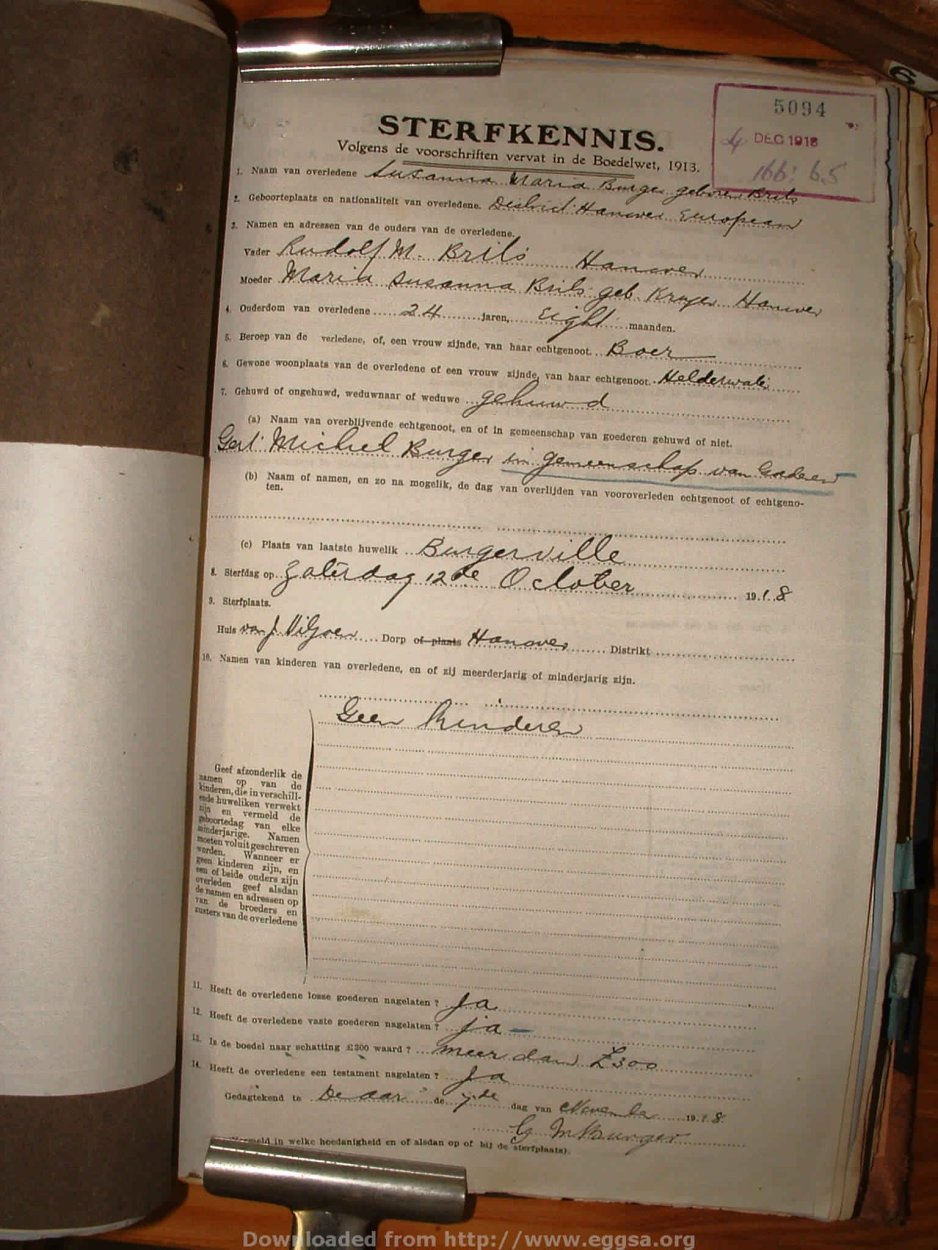 5094
DEC 1918
166: 65
STERFKENNIS.
Volgens de voorschriften vervat in de Boedelwet, 1913.
1. Naam van overledene Susanna Maria Burger geboren Brits
2. Geboorteplaats en nationaliteit van overledene. District Hanover European
3. Namen en adressen van de ouders van de overledene.
Vader Rudolf M. Brits Hanover
Moeder Maria Susanna Brits geb. Kruger Hanover
4. Ouderdom van overledene 24 jaren, Eight maanden.
5. Beroep van de verledene, of, een vrouw zijnde, van haar echtgenoot Boer
6. Gewone woonplaats van de overledene of een vrouw zijnde, van haar echtgenoot.
7. Gehuwd of ongehuwd, weduwnaar of weduwe gehuwd
(a) Naam van overblijvende echtgenoot, en of in gemeenschap van goederen gehuwd of niet.
Gert Michiel Burger in gemeenschap van Goederen
(b) Naam of namen, en zo na mogelik, de dag van overlijden van vooroverleden echtgenoot of echtgeno-
ten.
(c) Plaats van laatste huwelik Burgerville
8. Sterfdag op Zaterdag 12de October 1918
9. Sterfplaats.
Huis van J. Viljoen Dorp of plaats Hanover Distrikt
10. Namen van kinderen van overledene, en of zij meerderjarig of minderjarig zijn.
Geen Kinderen
Geef afzonderlik de
namen op van de
kinderen, die in verschill-
ende huweliken verwekt
zijn en vermeld de
geboortedag van elke
minderjarige. Namen
moeten voluit geschreven
worden. Wanneer er
geen kinderen zijn, en
een of beide ouders zijn
overleden geef alsdan
de namen en adressen op
van de broeders en
zusters van de overledene
11. Heeft de overledene losse goederen nagelaten? Ja
12. Heeft de overledene vaste goederen nagelaten? ja
13. Is de boedel naar schatting £300 waard? meer dan £300
14. Heeft de overledene een testament nagelaten? Ja
Gedagtekend te De Aar de 7de dag van November 1918
G M Burger
in welke hoedanigheid en of alsdan op of bij de sterfplaats).
Downloaded from http://www.eggsa.org